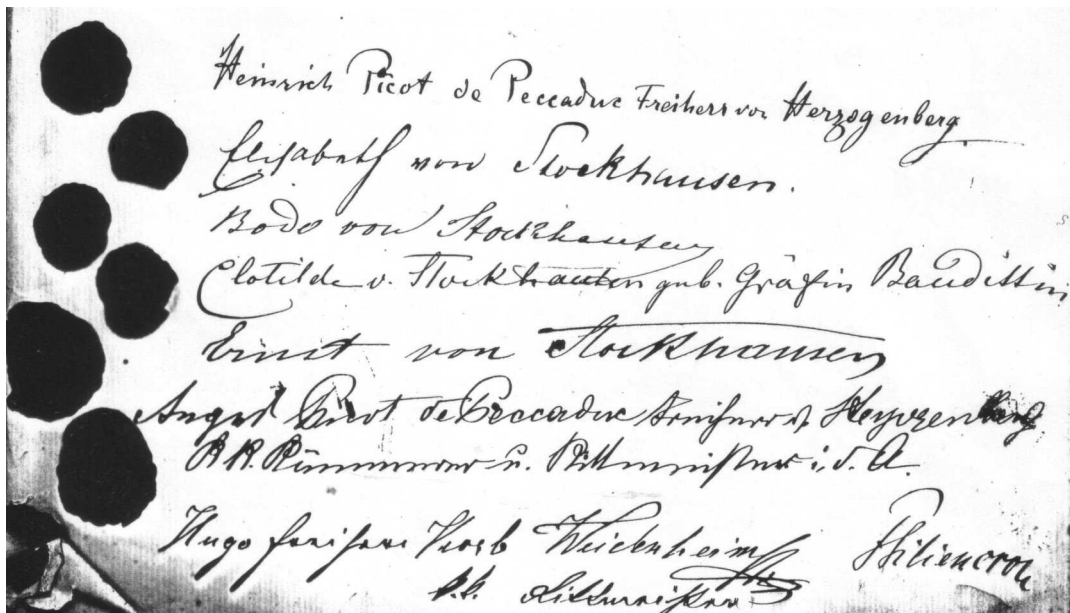 Heinrich Picot de Peccaduc Freiherr von Herzogenberg
Elisabeth von Stockhausen.
Bodo von Stockhausen
Clotilde v. Stockhausen geb. Gräfin Baudissin
Ernst von Stockhausen
August Picot de Peccaduc Freiherr v. Herzogenberg
K. K. Kämmerer u. Rittmeister i. d. A.
Hugo Freiherr Korb Weidenheim
k. k. Rittmeister